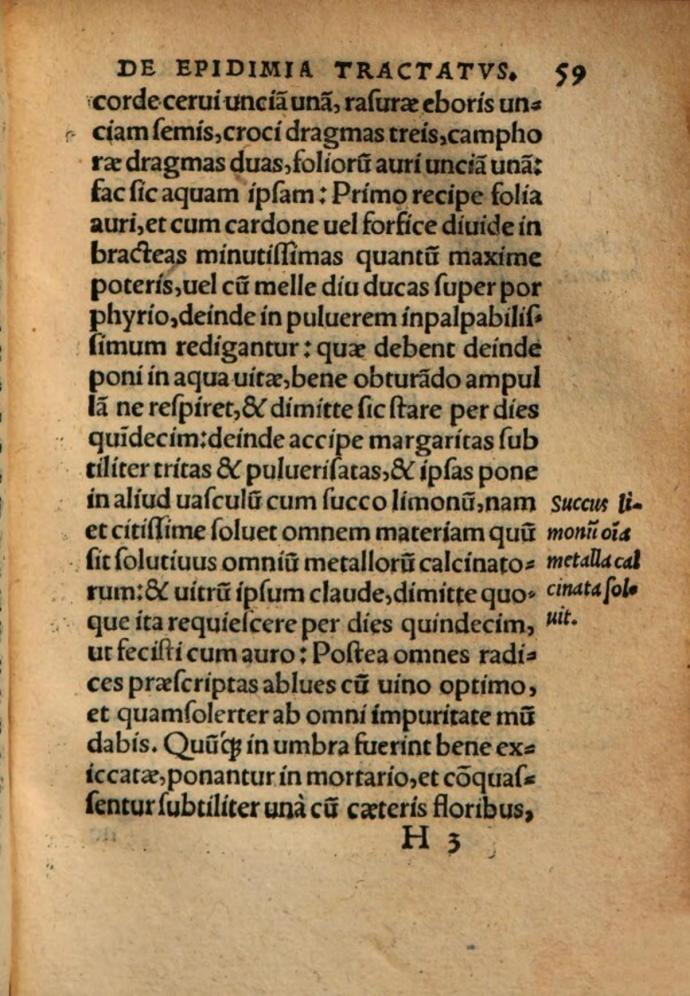 DE EPIDIMIA TRACTATVS. 59
corde cerui unciã unã, raſuræ eboris un⸗
ciam ſemis, croci dragmas treis, campho
ræ dragmas duas, foliorũ auri unciã unã:
fac ſic aquam ipſam: Primo recipe folia
auri, et cum cardone uel forfice diuide in
bracteas minutiſſimas quantũ maxime
poteris, uel cũ melle diu ducas ſuper por
phyrio, deinde in puluerem inpalpabiliſ⸗
ſimum redigantur: quæ debent deinde
poni in aqua uitæ, bene obturãdo ampul
lã ne reſpiret, & dimitte ſic ſtare per dies
quĩdecim: deinde accipe margaritas ſub
tiliter tritas & pulueriſatas, & ipſas pone
in aliud uaſculũ cum ſucco limonũ, nam
et citiſſime ſoluet omnem materiam quũ
ſit ſolutiuus omniũ metallorũ calcinato⸗
rum: & uitrũ ipſum claude, dimitte quo⸗
que ita requieſcere per dies quindecim,
ut feciſti cum auro: Poſtea omnes radi⸗
ces præſcriptas ablues cũ uino optimo,
et quamſolerter ab omni impuritate mũ
dabis. Quũq́; in umbra fuerint bene ex⸗
iccatæ, ponantur in mortario, et cõquaſ⸗
ſentur ſubtiliter unà cũ cæteris floribus,
H 3
Succus li⸗
monũ oĩa
metalla cal
cinata ſol⸗
uit.